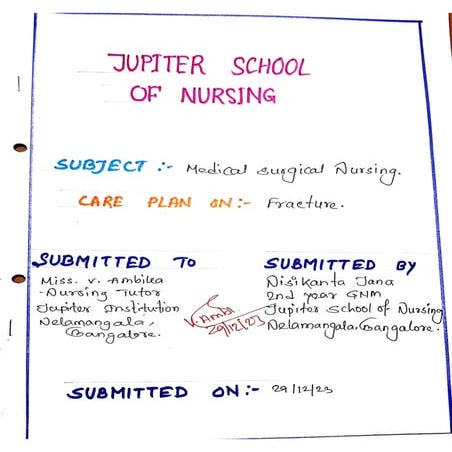 JUPITER SCHOOL
OF NURSING
SUBJECT :- Medical surgical Nursing.
CARE PLAN ON:- Fracture.
SUBMITTED TO
Miss. V. Ambika
Nursing Tutor
Jupiter Institution
Nelamangala,
Bangalore.
V. Ambi
29/12/23
SUBMITTED BY
Nisikanta Jana
2nd year GNM
Jupiter School of Nursing
Nelamangala. Bangalore.
SUBMITTED ON:- 29/12/23